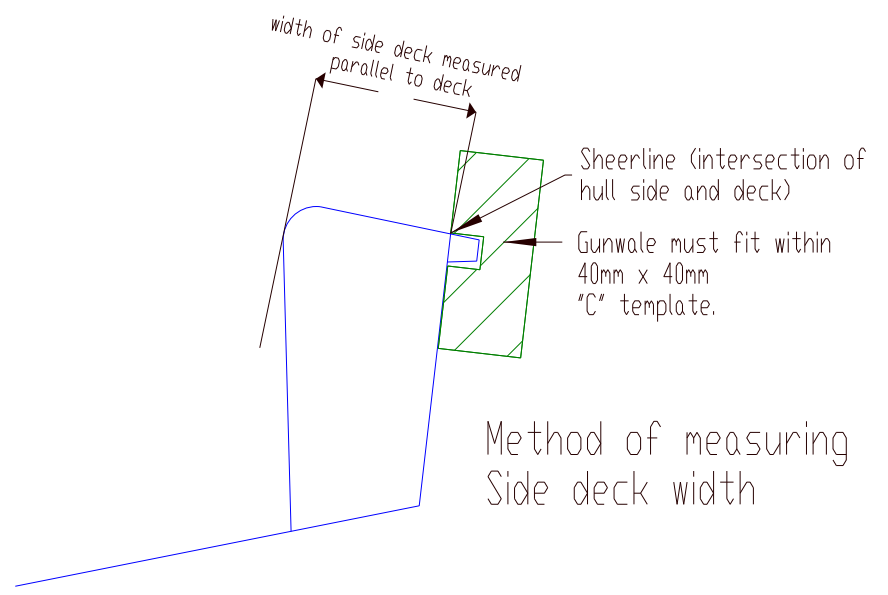 width of side deck measured
parallel to deck
Sheerline (intersection of
hull side and deck)
Gunwale must fit within
40mm x 40mm
"C" template.
Method of measuring
Side deck width